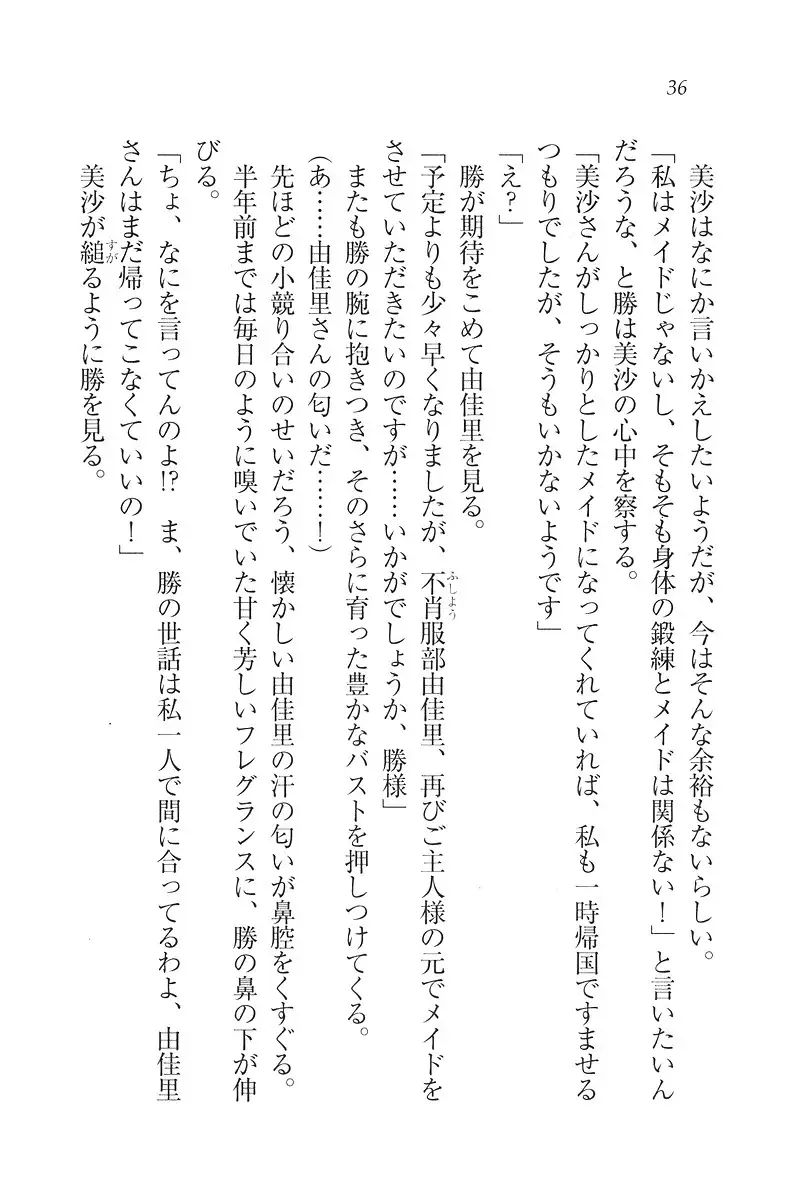 36
美沙はなにか言いかえしたいようだが、今はそんな余裕もないらしい。
「私はメイドじゃないし、そもそも身体の鍛練とメイドは関係ない！」と言いたいん
だろうな、と勝は美沙の心中を察する。
「美沙さんがしっかりとしたメイドになってくれていれば、私も一時帰国ですませる
つもりでしたが、そうもいかないようです」
「え？」
勝が期待をこめて由佳里を見る。
「予定よりも少々早くなりましたが、不肖服部由佳里、再びご主人様の元でメイドを
ふしょう
させていただきたいのですが……いかがでしょうか、勝様」
またも勝の腕に抱きつき、そのさらに育った豊かなバストを押しつけてくる。
（あ……由佳里さんの匂いだ……！）
先ほどの小競り合いのせいだろう、懐かしい由佳里の汗の匂いが鼻腔をくすぐる。
半年前までは毎日のように嗅いでいた甘く芳しいフレグランスに、勝の鼻の下が伸
びる。
「ちょ、なにを言ってんのよ!?　ま、勝の世話は私一人で間に合ってるわよ、由佳里
さんはまだ帰ってこなくていいの！」
美沙が縋るように勝を見る。
すが